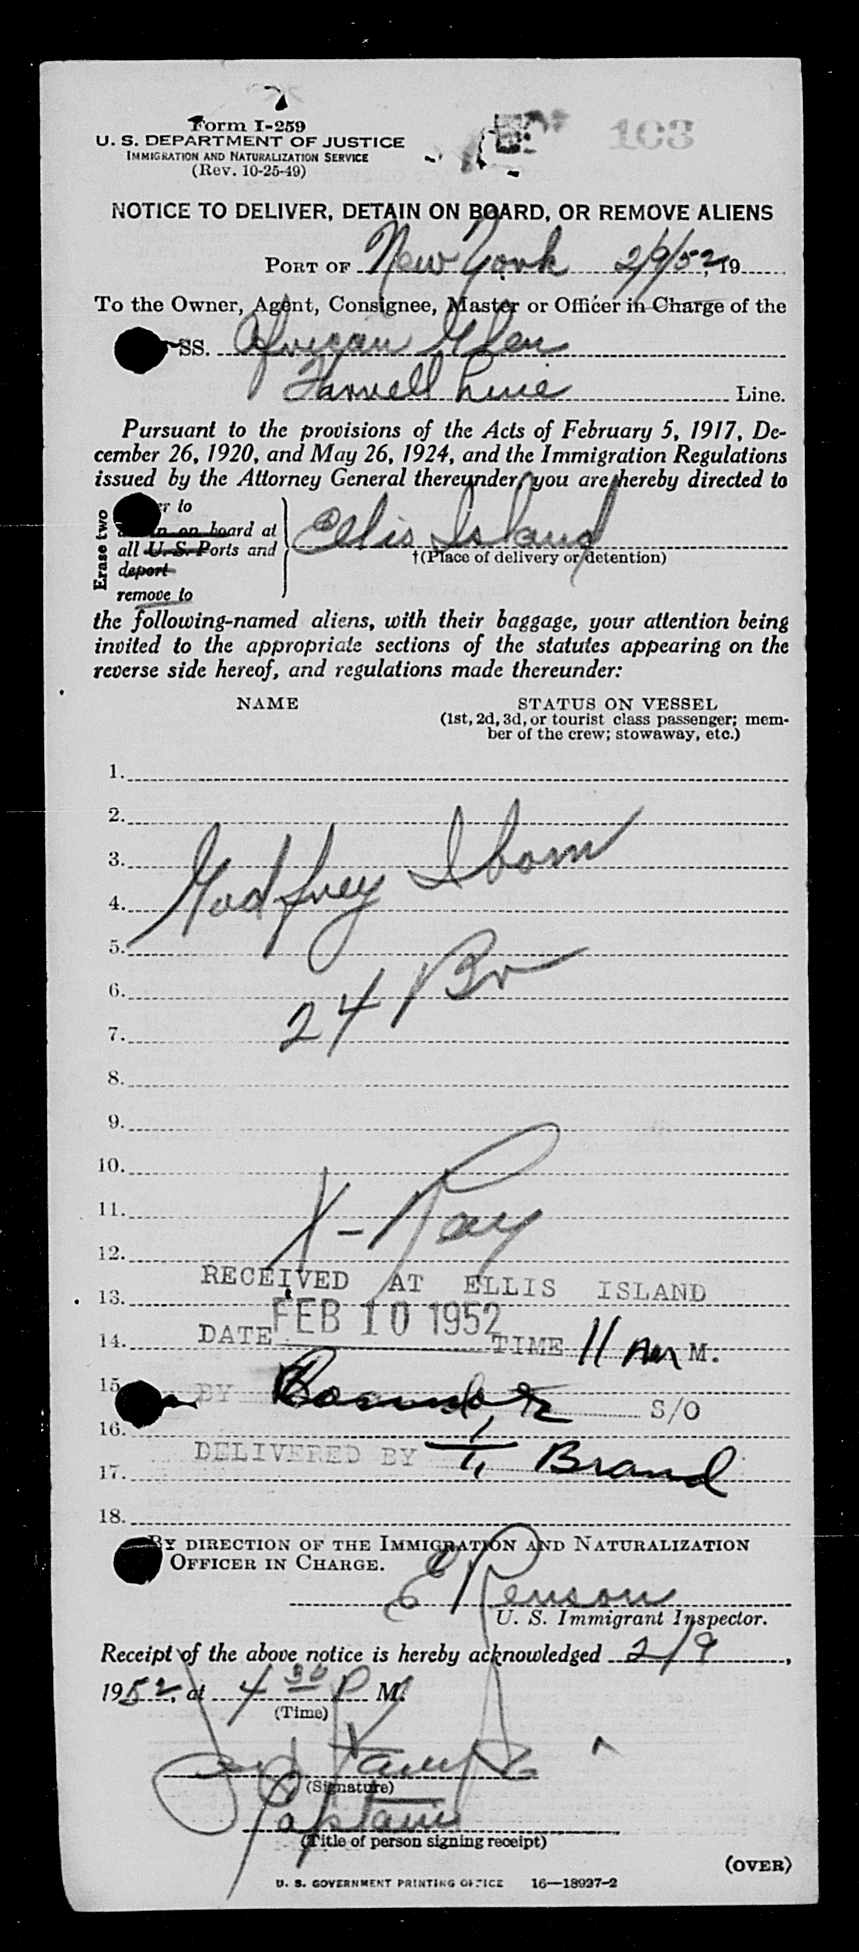 Form I-259
U. S. DEPARTMENT OF JUSTICE
IMMIGRATION AND NATURALIZATION SERVICE
(Rev. 10-25-49)
103
NOTICE TO DELIVER, DETAIN ON BOARD, OR REMOVE ALIENS
PORT OF New York 2/9/52, 19
To the Owner, Agent, Consignee, Master or Officer in Charge of the
SS. African Glen
Farrell Line Line.
Pursuant to the provisions of the Acts of February 5, 1917, De-
cember 26, 1920, and May 26, 1924, and the Immigration Regulations
issued by the Attorney General thereunder, you are hereby directed to
Erase two
to
on board at
all U. S. Ports and
deport
remove to
Ellis Island
†(Place of delivery or detention)
the following-named aliens, with their baggage, your attention being
invited to the appropriate sections of the statutes appearing on the
reverse side hereof, and regulations made thereunder:
NAME STATUS ON VESSEL
(1st, 2d, 3d, or tourist class passenger; mem-
ber of the crew; stowaway, etc.)
1.
2.
3. Godfrey Ibom
4.
5.
6. 24 Br
7.
8.
9.
10.
11. X-Ray
12.
RECEIVED AT ELLIS ISLAND
13.
FEB 10 1952
14. DATE TIME 11 AM M.
15. BY S/O
16.
DELIVERED BY Brand
17.
18.
BY DIRECTION OF THE IMMIGRATION AND NATURALIZATION
OFFICER IN CHARGE.
E Renson
U. S. Immigrant Inspector.
Receipt of the above notice is hereby acknowledged 2/9,
1952, at 4 30 P M.
(Time)
(Signature)
Captain
(Title of person signing receipt)
(OVER)
U. S. GOVERNMENT PRINTING OFFICE 16—18927-2